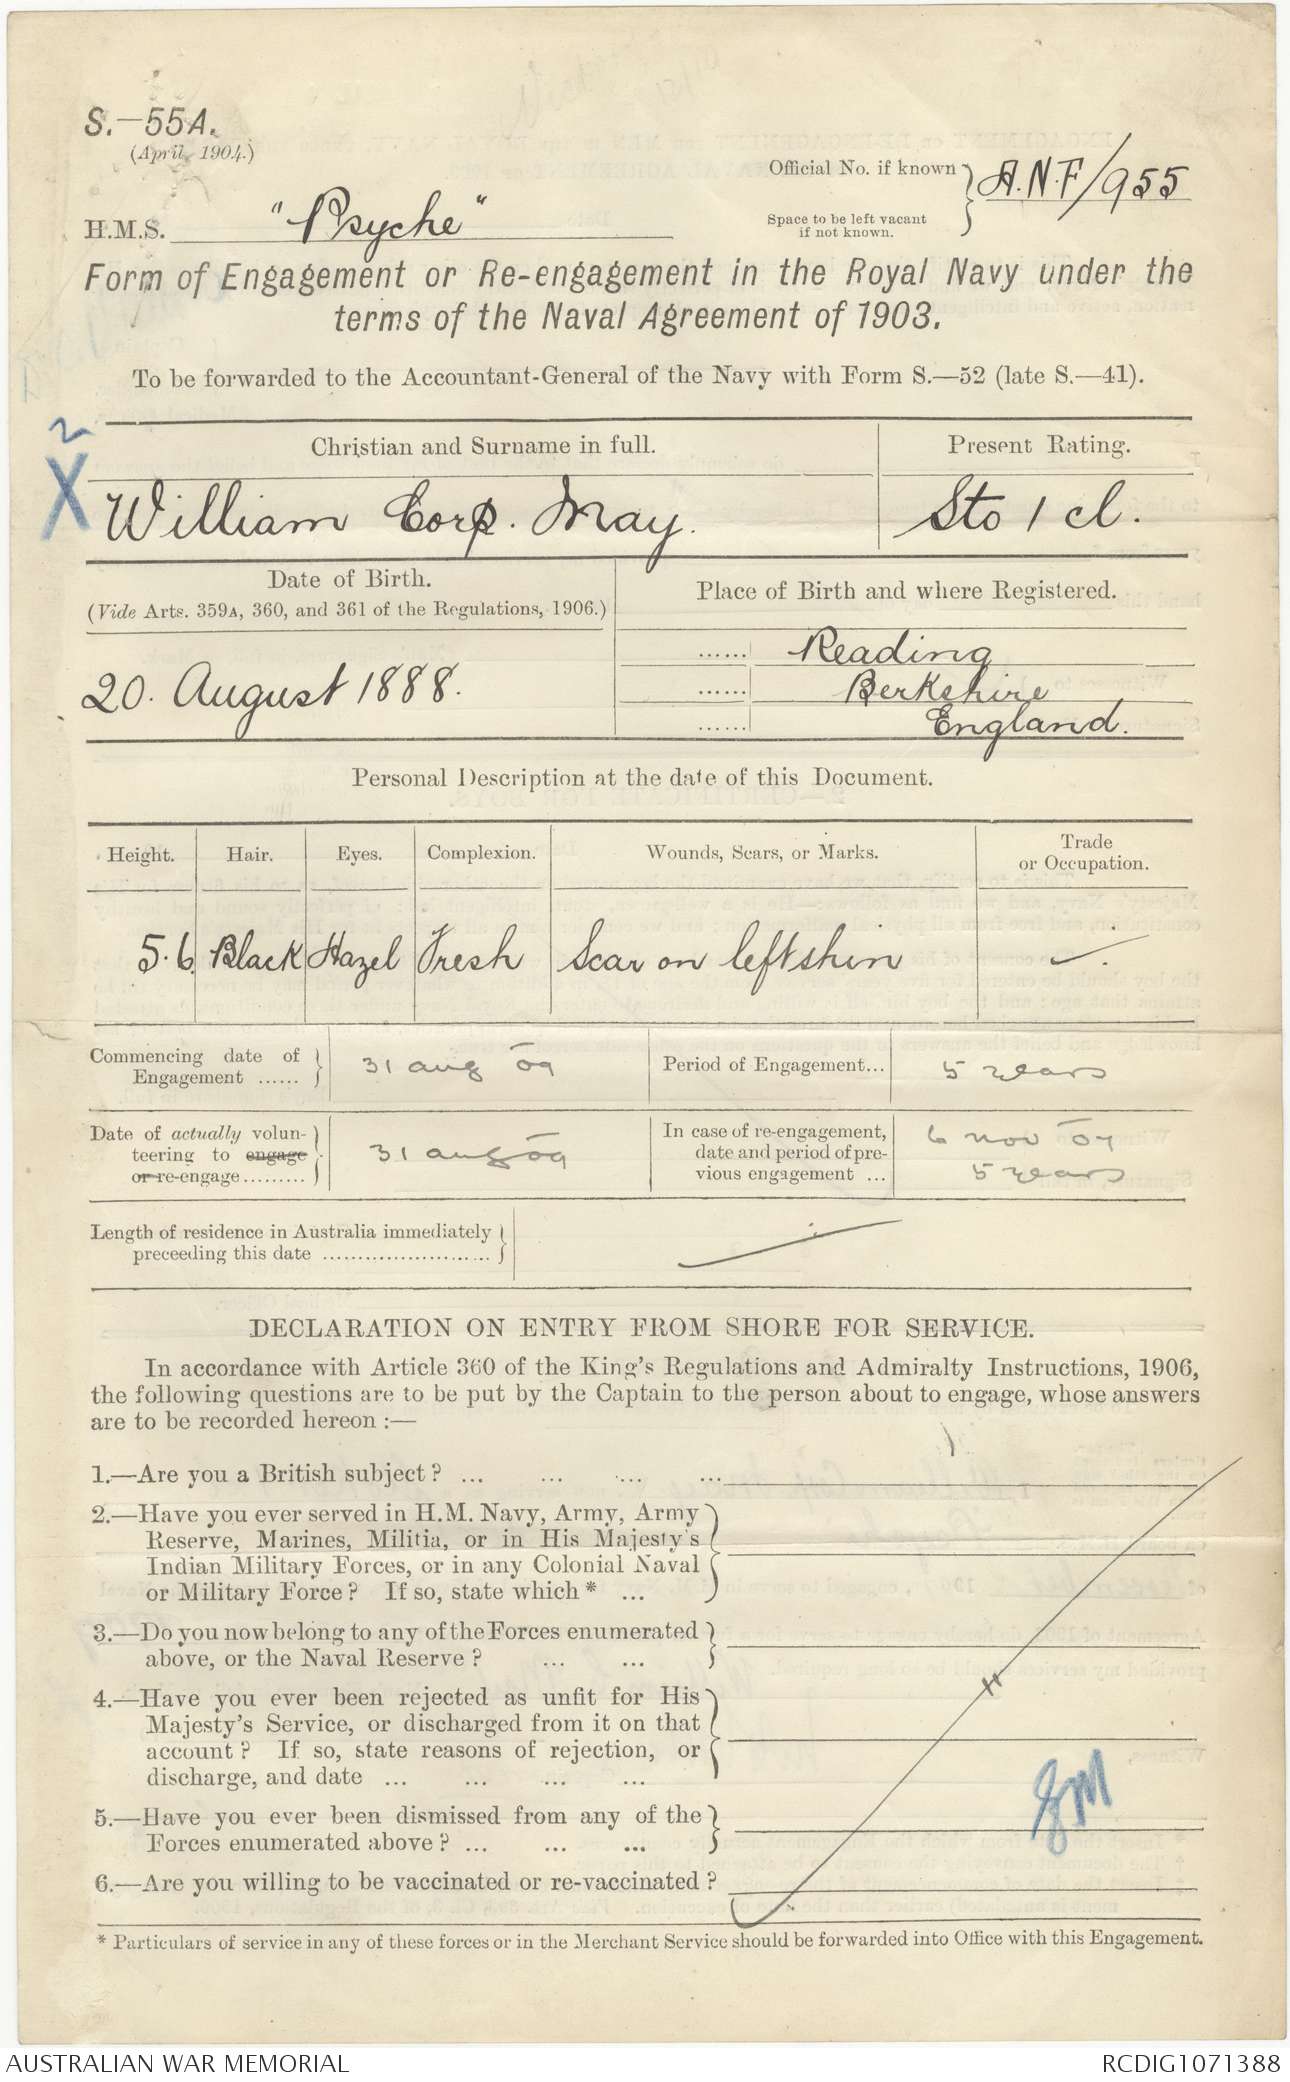 S.—55A.
(April, 1904.)
Official No. if known } A.N.F/955
Space to be left vacant
if not known.
H.M.S. "Psyche"
Form of Engagement or Re-engagement in the Royal Navy under the
terms of the Naval Agreement of 1903.
To be forwarded to the Accountant-General of the Navy with Form S.—52 (late S.—41).
2
X
Christian and Surname in full. Present Rating.
William Corp. May. Sto 1 cl.
Date of Birth.
(Vide Arts. 359A, 360, and 361 of the Regulations, 1906.)
Place of Birth and where Registered.
20. August 1888.
...... Reading
...... Berkshire
...... England.
Personal Description at the date of this Document.
Height. Hair. Eyes. Complexion. Wounds, Scars, or Marks. Trade
or Occupation.
5.6 Black Hazel Fresh Scar on left shin
Commencing date of
Engagement ...... } 31 aug 09
Period of Engagement... 5 years
Date of actually volun-
teering to engage
or re-engage......... } 31 aug 09
In case of re-engagement,
date and period of pre-
vious engagement ...
6 nov 04
5 years
Length of residence in Australia immediately
preceeding this date ........................ }
DECLARATION ON ENTRY FROM SHORE FOR SERVICE.
In accordance with Article 360 of the King's Regulations and Admiralty Instructions, 1906,
the following questions are to be put by the Captain to the person about to engage, whose answers
are to be recorded hereon :—
1.—Are you a British subject? ... ... ... ...
2.—Have you ever served in H.M. Navy, Army, Army
Reserve, Marines, Militia, or in His Majesty's
Indian Military Forces, or in any Colonial Naval
or Military Force? If so, state which * ...
3.—Do you now belong to any of the Forces enumerated
above, or the Naval Reserve? ... ...
4.—Have you ever been rejected as unfit for His
Majesty's Service, or discharged from it on that
account? If so, state reasons of rejection, or
discharge, and date ... ... ... ...
5.—Have you ever been dismissed from any of the
Forces enumerated above? ... ... ...
6.—Are you willing to be vaccinated or re-vaccinated?
* Particulars of service in any of these forces or in the Merchant Service should be forwarded into Office with this Engagement.
AUSTRALIAN WAR MEMORIAL RCDIG1071388